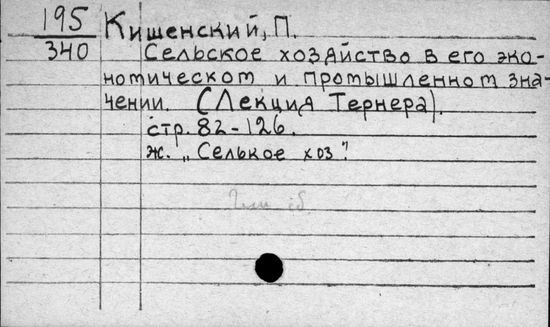 195
340
Кишенский, П.
Сельское хозяйство в его эко-
номическом и промышленном зна-
чении. (Лекция Тернера).
стр. 82-126.
ж. „Селькое хоз"?